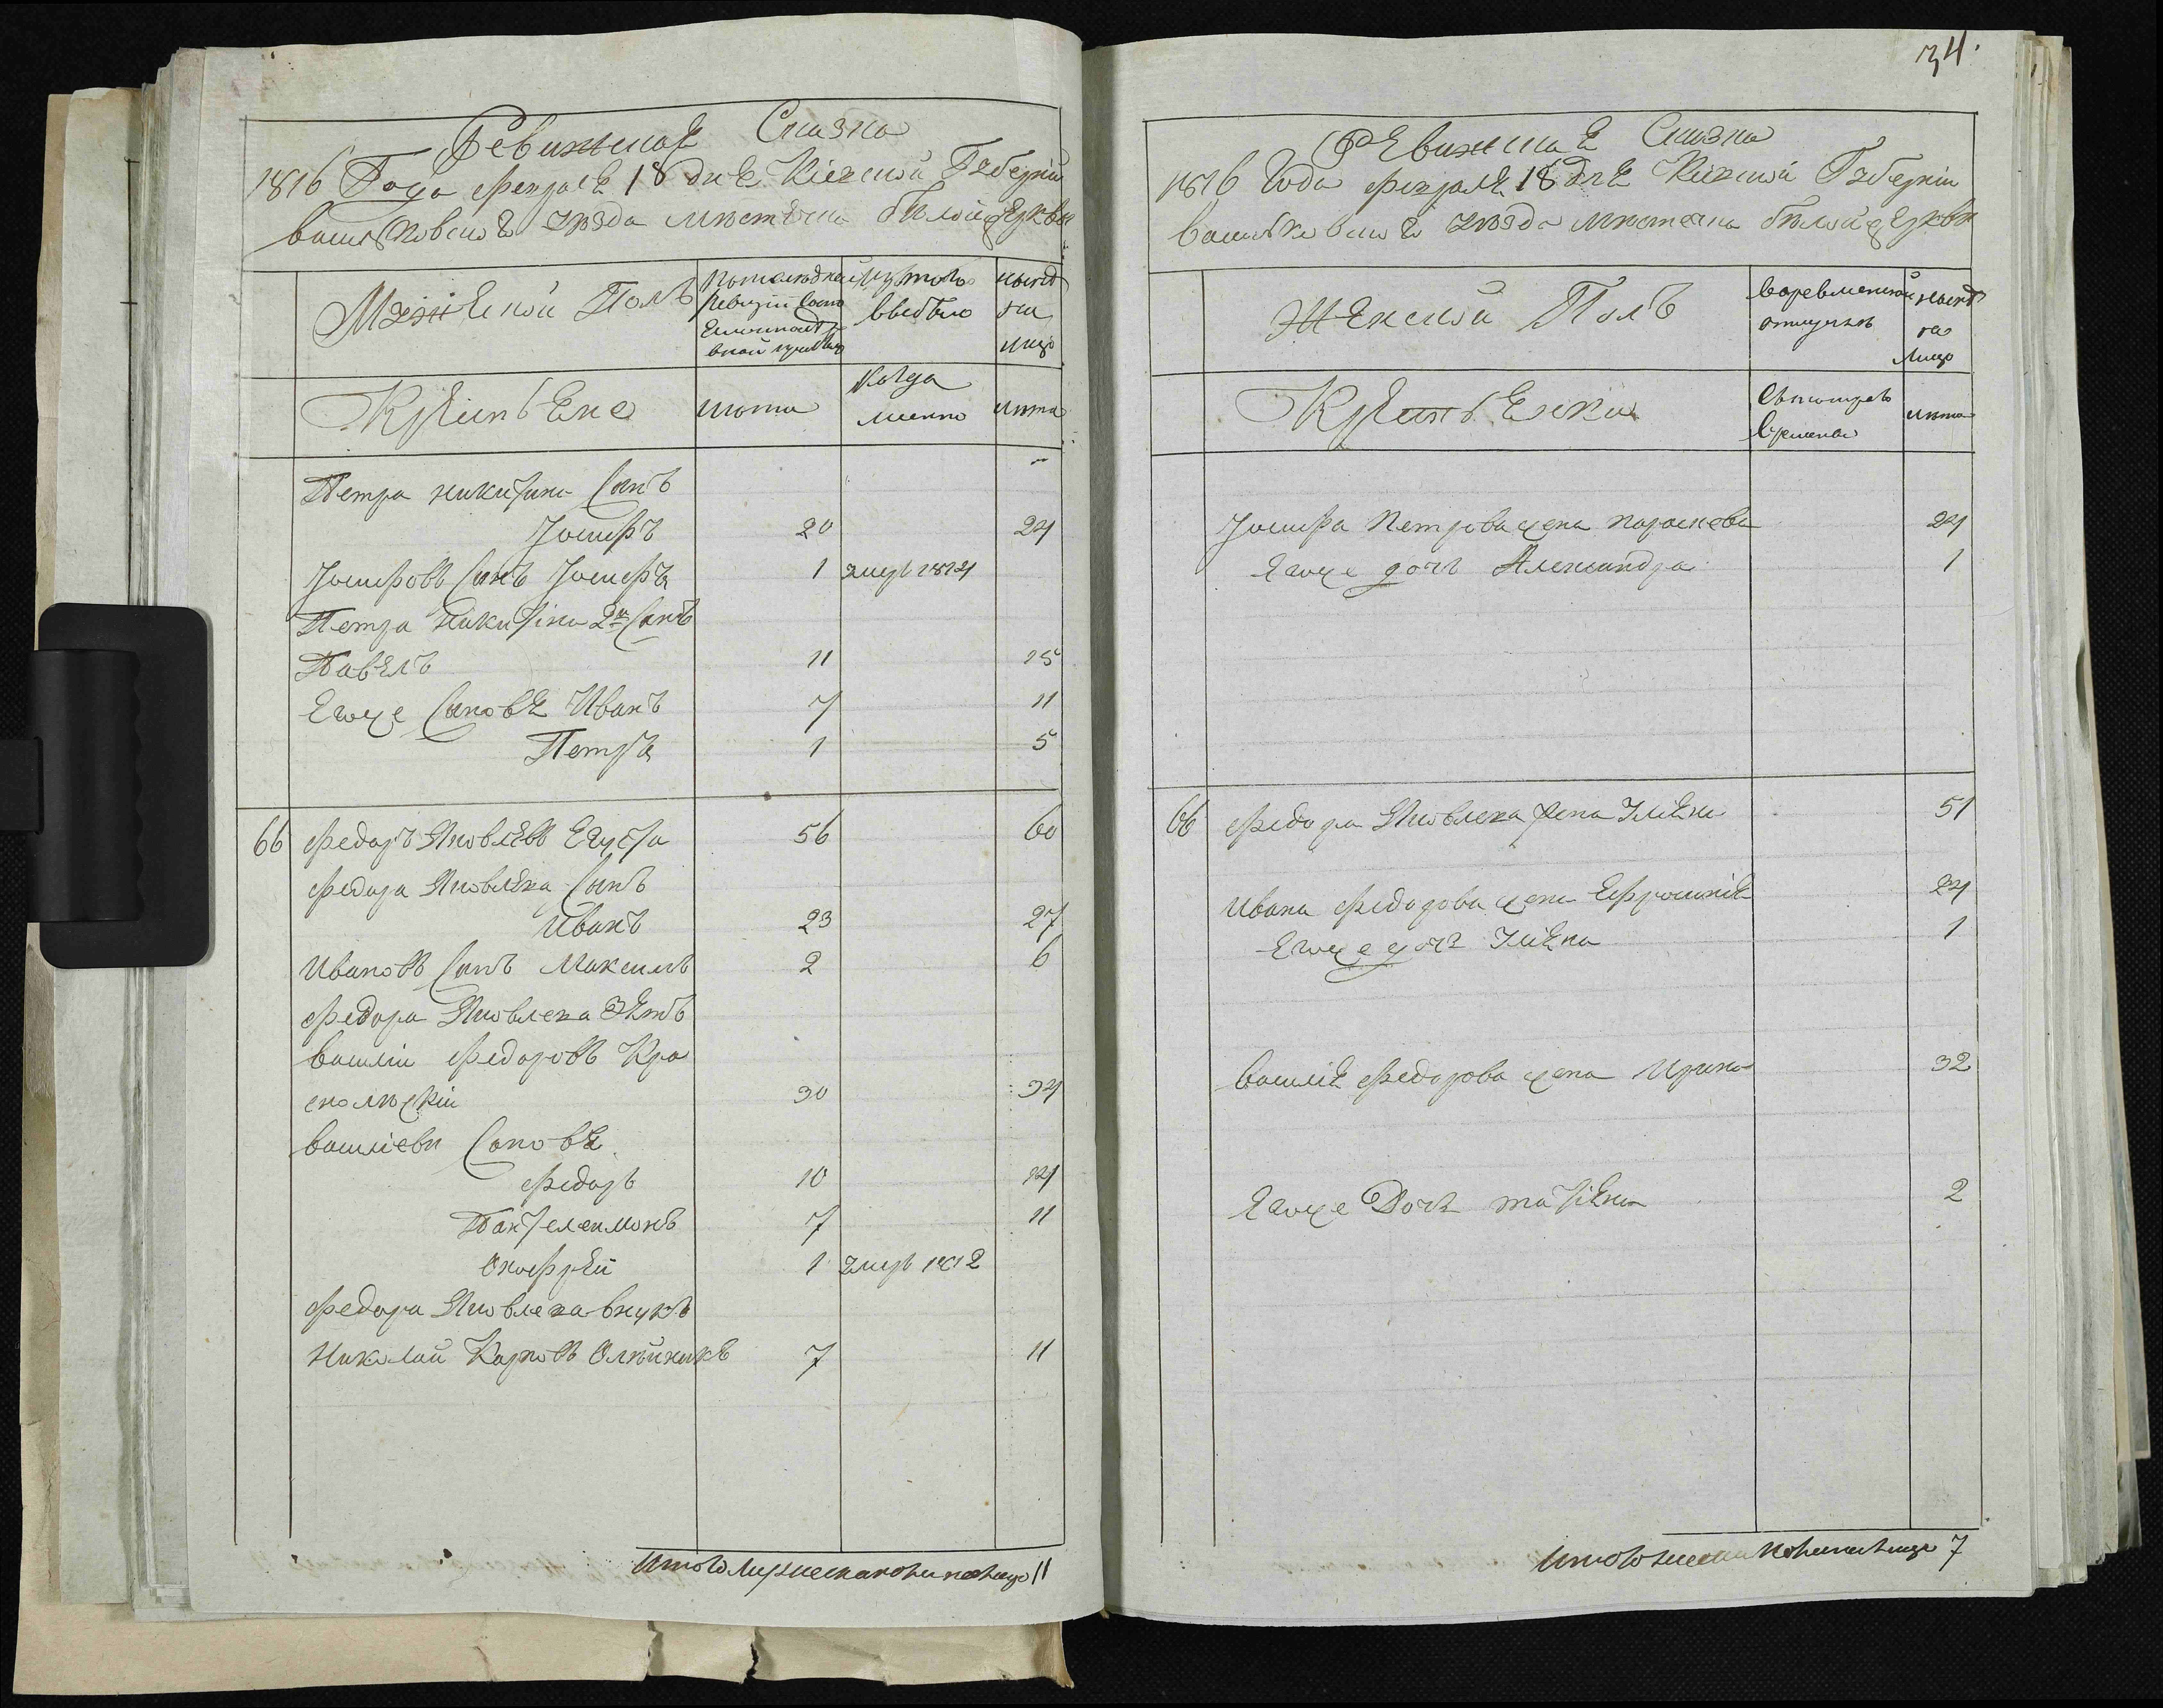 Ревижская Сказка
1816 Года февраля 18 дня Кіевской Губерніи
васильковского уезда местечка белой церкви
Мужеской Полъ
По последней ревизіи состо
изъ того выбыло
ныне на лицо
Крестьяне
лета
когда
именно
лета
Петра никитина Сынъ
Іосифъ 20 24
Іосифовъ Сынъ Іосифъ 1 умеръ 1814
Петра Никитина 2й Сынъ
Павелъ 11 15
Егоже Сыновья Иванъ 7 11
Петръ 1 5
66 Федоръ Яковлевъ 56 60
Федора Яковлева Сынъ
Иванъ 23 27
Ивановъ Сынъ Максимъ 2 6
Федора Яковлева Зять
василій Федоровъ Кра
30 34
василіевы Сыновья
Федоръ 10 14
Пантелеимонъ 7 11
Онофрей 1 умеръ 1812
Федора Яковлева внукъ
Николай Карповъ Олейникъ 7 11
Итого мужеска пола на лицо 11
34.
Ревижская Сказка
1816 Года февраля 18 дня Кіевской Губерніи
васильковского уезда местечка белой церкви
Женской Полъ
во временной отлучке
ныне на лицо
Крестьянки
съ котораго времени
лета
Іосифа Петрова жена параскева 24
Егоже дочь Александра 1
66 Федора Яковлева жена Уліяна 51
Ивана Федорова жена Ефросинія 24
Егоже дочь Уліяна 1
василія Федорова жена Ирина 32
Егоже Дочь татіяна 2
Итого женска пола на лицо 7